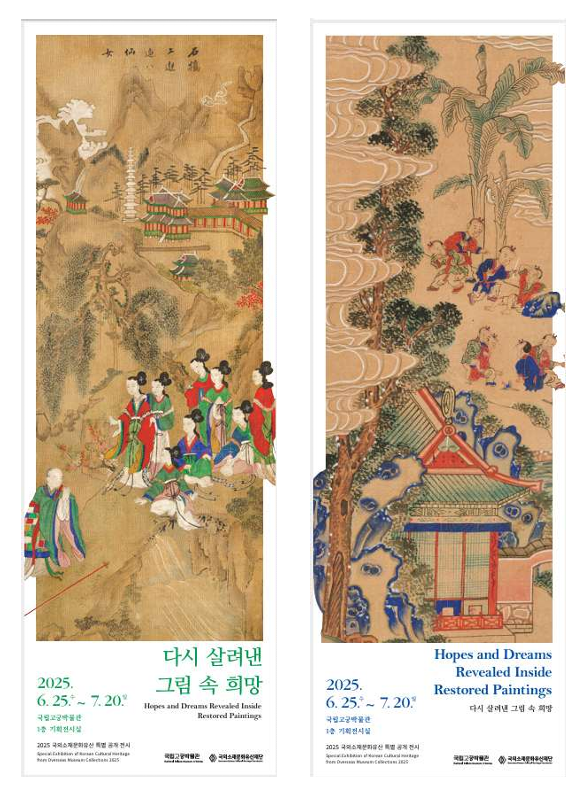 石橋
上逢
遊
仙
女
다시 살려낸
그림 속 희망
Hopes and Dreams Revealed Inside
Restored Paintings
2025.
6. 25.수 ~ 7. 20.일
국립고궁박물관
1층 기획전시실
2025 국외소재문화유산 특별 공개 전시
Special Exhibition of Korean Cultural Heritage
from Overseas Museum Collections 2025
국립고궁박물관
국외소재문화유산재단
Hopes and Dreams
Revealed Inside
Restored Paintings
다시 살려낸 그림 속 희망
2025.
6. 25.수 ~ 7. 20.일
국립고궁박물관
1층 기획전시실
2025 국외소재문화유산 특별 공개 전시
Special Exhibition of Korean Cultural Heritage
from Overseas Museum Collections 2025
국립고궁박물관
국외소재문화유산재단